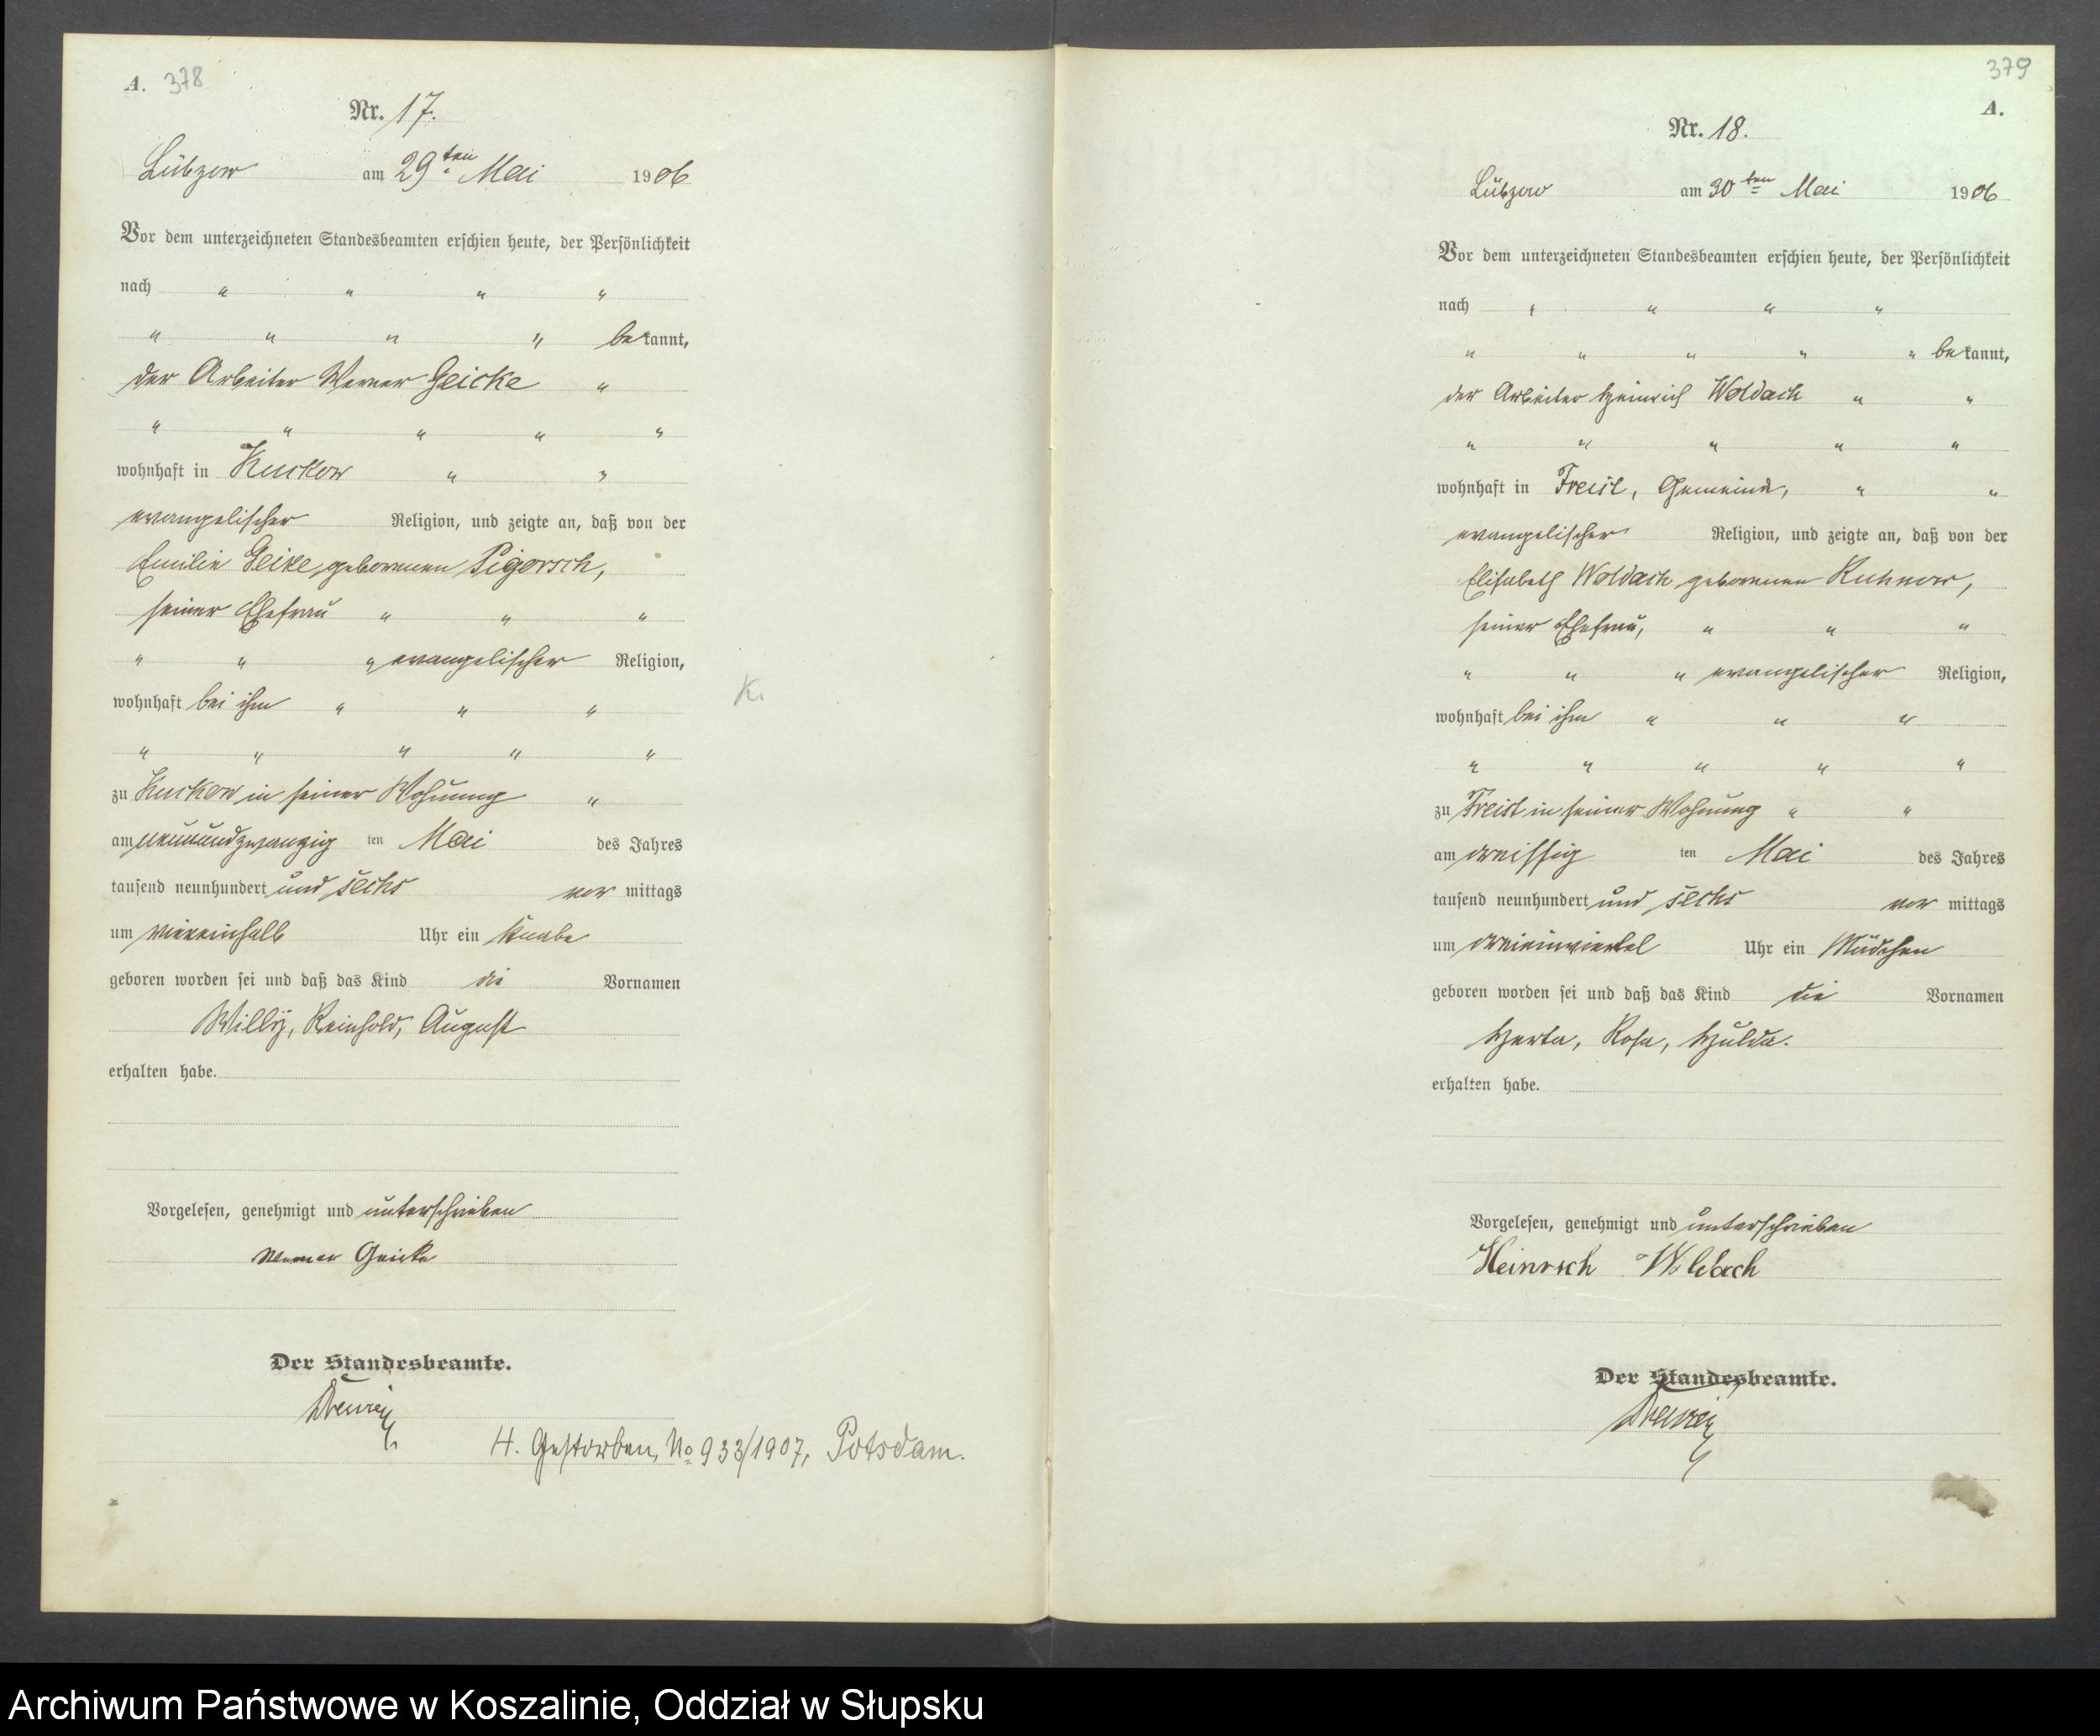 A. 378
Nr. 17.
Lübzow am 29ten Mai 1906
Vor dem unterzeichneten Standesbeamten erschien heute, der Persönlichkeit
nach " " " "
" " " " bekannt,
der Arbeiter Werner Geicke "
" " " " "
wohnhaft in Kuskow " "
evangelischer Religion, und zeigte an, daß von der
Emilie Geike, geborenen Pigorsch,
seiner Ehefrau " " "
" " " evangelischer Religion,
wohnhaft bei ihm " " "
" " " " "
zu Kuskow in seiner Wohnung "
am neunundzwanzig ten Mai des Jahres
tausend neunhundert und sechs vor mittags
um viereinhalb Uhr ein Knabe
geboren worden sei und daß das Kind die Vornamen
Willy, Reinhold, August
erhalten habe.
Vorgelesen, genehmigt und unterschrieben
Werner Geicke
Der Standesbeamte.
H. Gestorben, No 933/1907, Potsdam.
K.
379
A.
Nr. 18.
Lübzow am 30ten Mai 1906
Vor dem unterzeichneten Standesbeamten erschien heute, der Persönlichkeit
nach " " " "
" " " " " bekannt,
der Arbeiter Heinrich Woldach " "
" " " " "
wohnhaft in Freist, Gemeinde, " "
evangelischer Religion, und zeigte an, daß von der
Elisabeth Woldach geborenen Kuhnow,
seiner Ehefrau, " " "
" " " evangelischer Religion,
wohnhaft bei ihm " " "
" " " " "
zu Freist in seiner Wohnung " "
am dreissig ten Mai des Jahres
tausend neunhundert und sechs vor mittags
um dreieinviertel Uhr ein Mädchen
geboren worden sei und daß das Kind die Vornamen
Herta, Rosa, Hulda.
erhalten habe.
Vorgelesen, genehmigt und unterschrieben
Heinrich Woldach
Der Standesbeamte.
Archiwum Państwowe w Koszalinie, Oddział w Słupsku